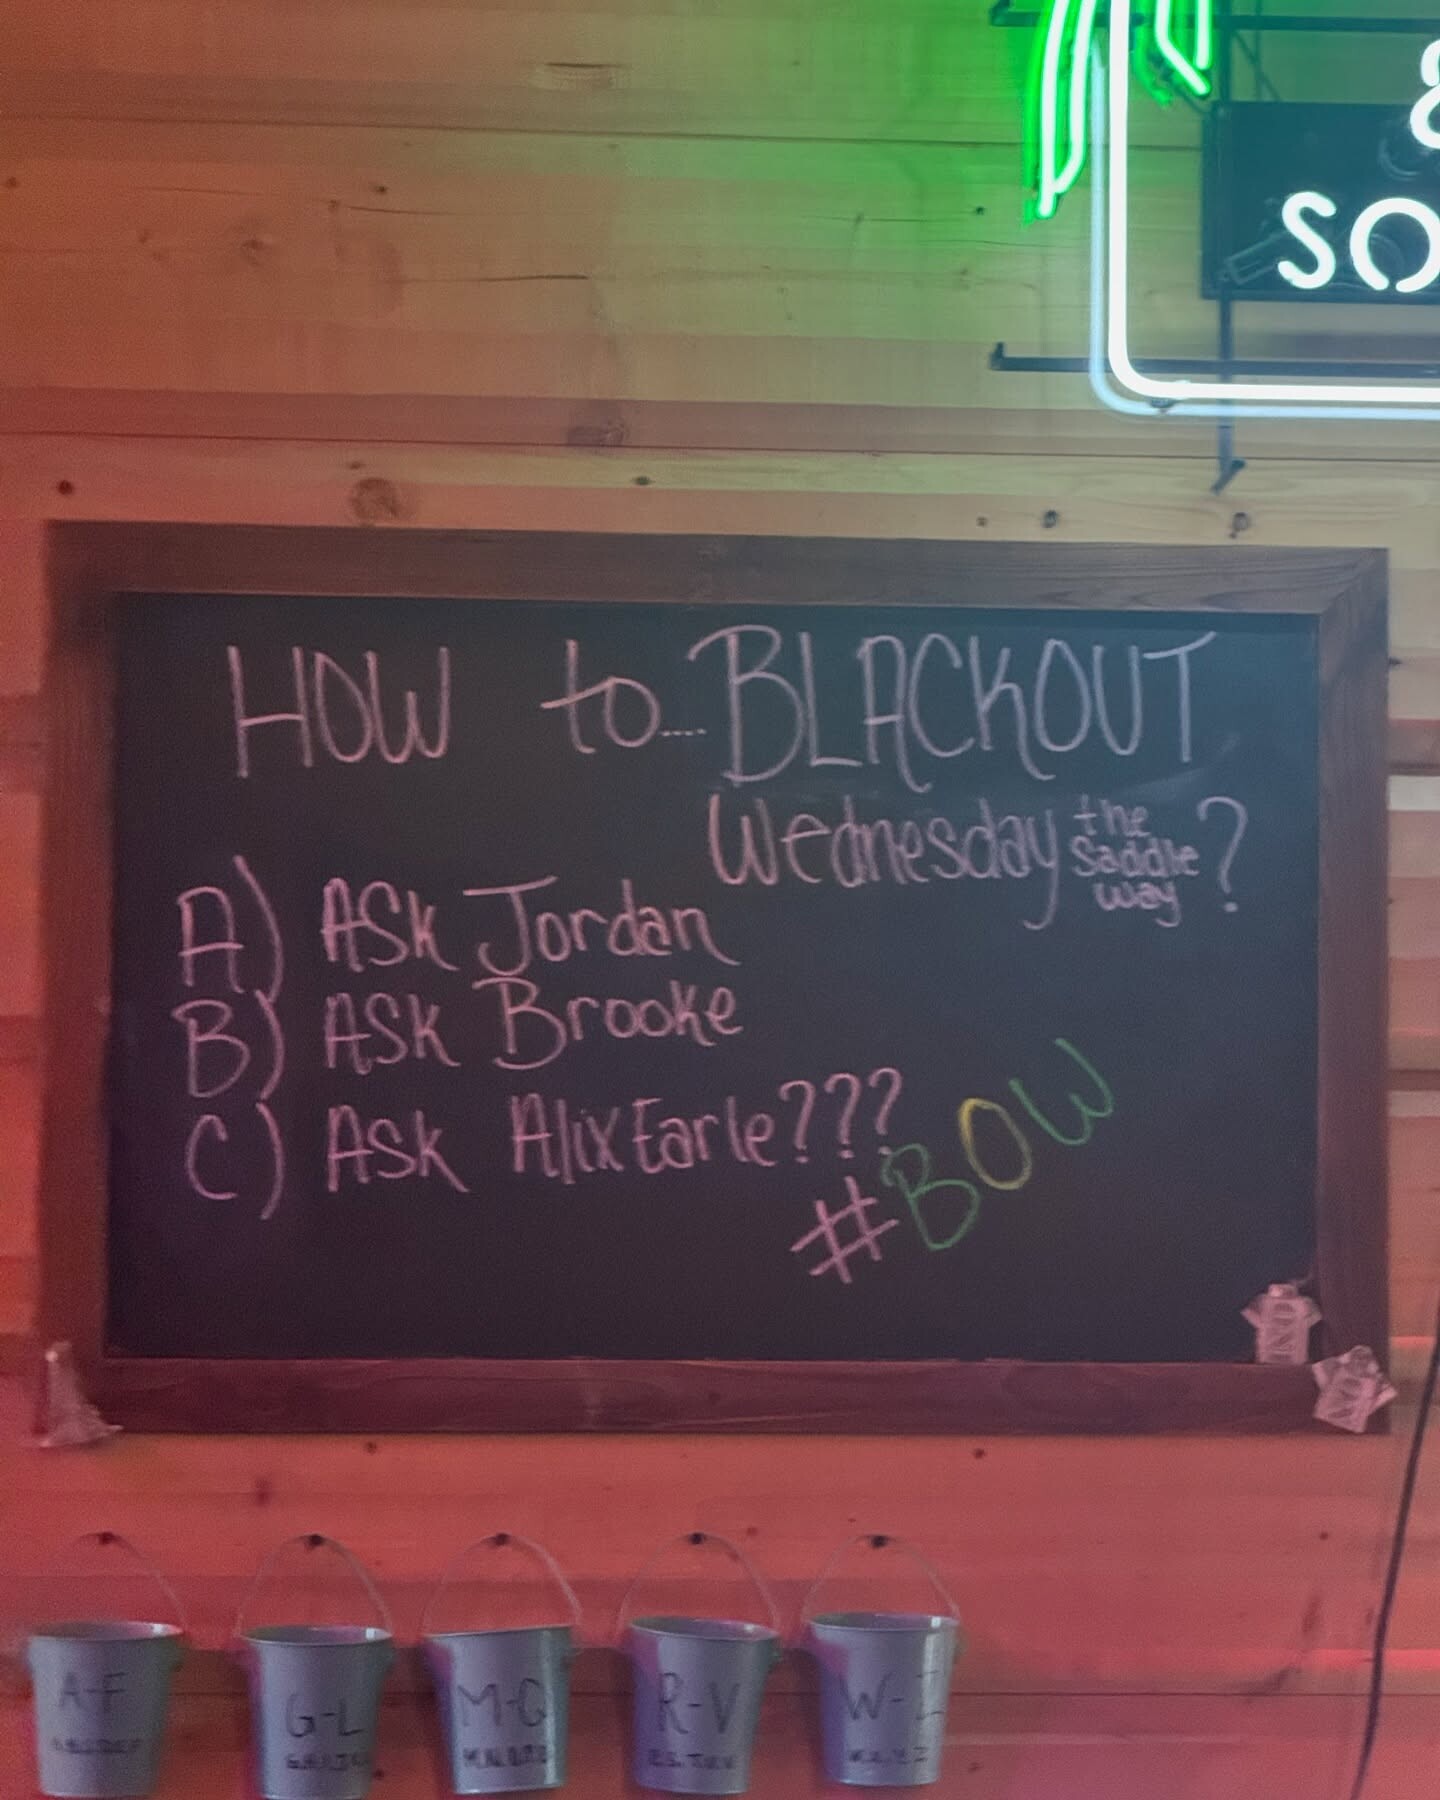 &
SO
HOW to.... BLACKOUT
Wednesday the Saddle way?
A) ASK Jordan
B) ASK Brooke
C) ASK Alix Earle???
#BOW
A-F
G-L
M-Q
R-V
W-Z